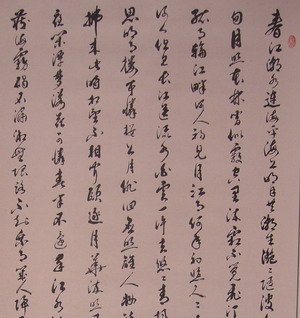 春江潮水連海平海上明月共潮生灩灩隨波
甸月照花林皆似霰空里流霜不覺飛汀
孤月輪江畔何人初見月江月何年初照人人
何人但見長江送流水白雲一片去悠悠青楓
思明月樓可憐樓上月徘徊應照離人妝
拂來此時相望不相聞願逐月華流照
夜閑潭夢落花可憐春半不還家江水
藏海霧碣石瀟湘無限路不知乘月幾人歸